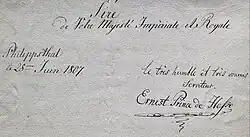 Sire
de Votre Majesté Impériale et Royale
Philippsthal
le 25me Juin 1807.
le très humble et très soumis
Serviteur
Ernest Prince de Hesse